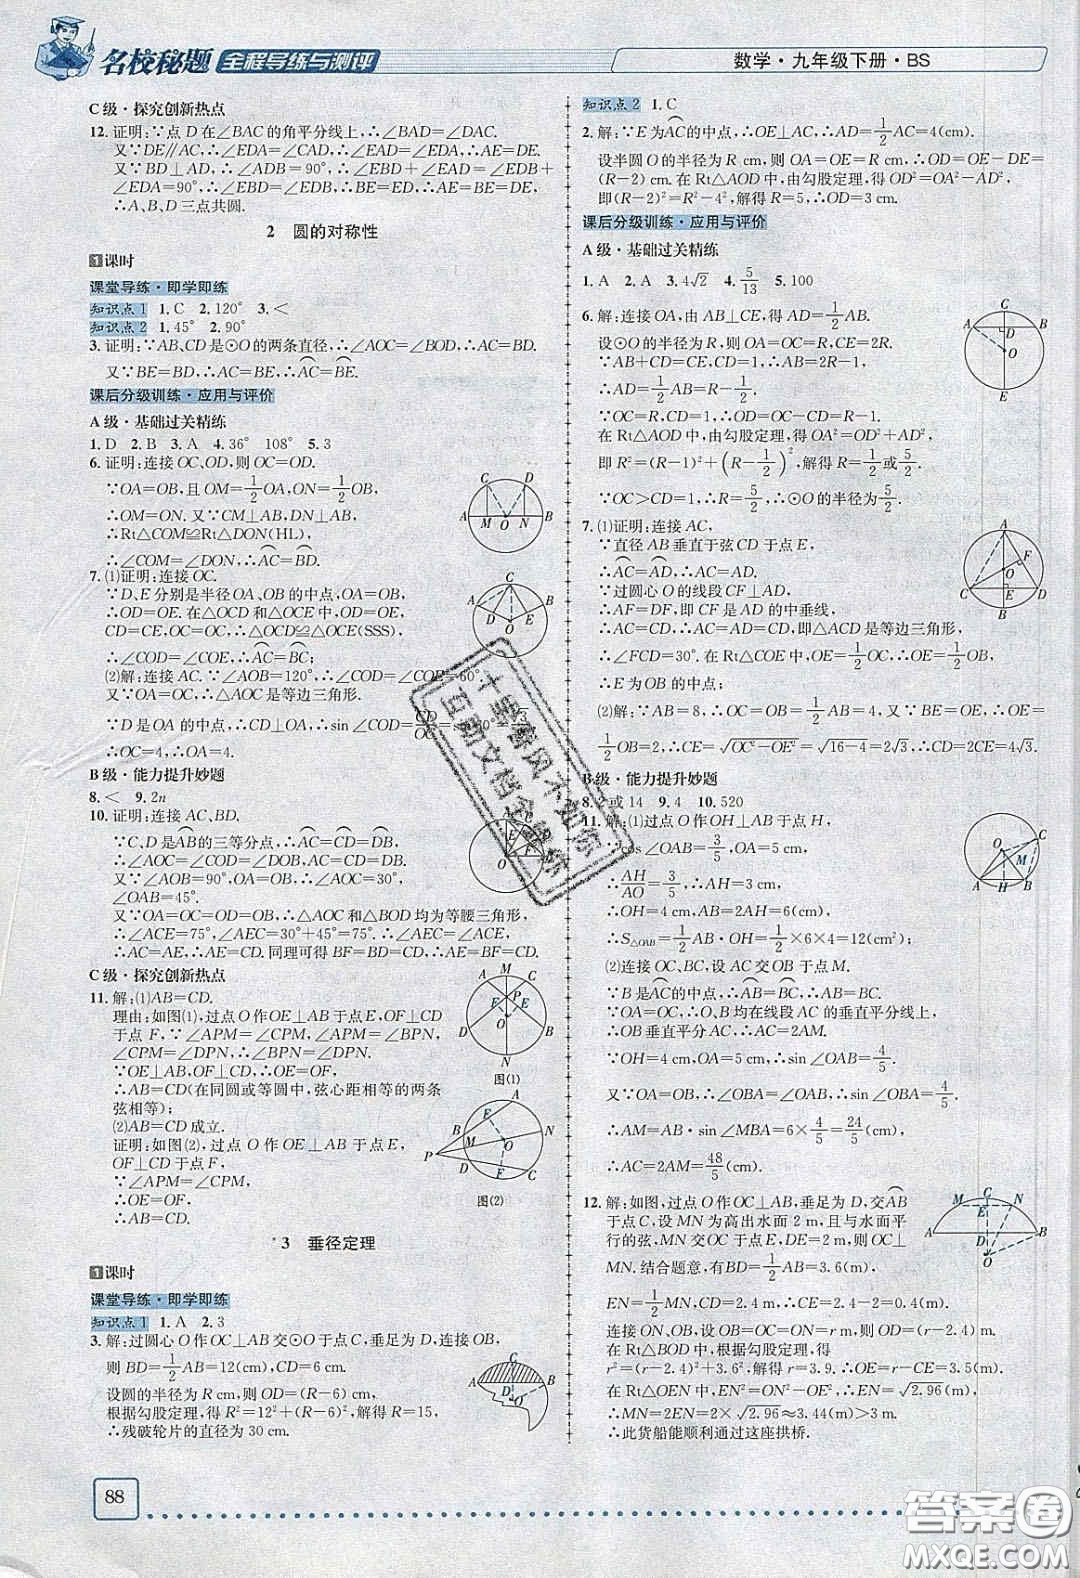 名校秘题 全程导练与测评
数学·九年级下册·BS
C级·探究创新热点
12.证明:∵点D在∠BAC的角平分线上,∴∠BAD=∠DAC.
又∵DE∥AC,∴∠EDA=∠CAD,∴∠EAD=∠EDA,∴AE=DE.
又∵BD⊥AD,∴∠ADB=90°,∴∠EBD+∠EAD=∠EDB+
∠EDA=90°,∴∠EBD=∠EDB,∴BE=ED,∴AE=BE=DE,
∴A、B、D三点共圆.
2 圆的对称性
1课时
课堂导练·即学即练
知识点1 1.C 2.120° 3.<
知识点2 1.45° 2.90°
3.证明:∵AB、CD是⊙O的两条直径,∴∠AOC=∠BOD,∴AC=BD.
又∵BE=BD,∴AC=BE,∴AC=BE.
课后分级训练·应用与评价
A级·基础过关精练
1.D 2.B 3.A 4.36° 108° 5.3
6.证明:连接OC、OD,则OC=OD.
∵OA=OB,且OM=1/2OA,ON=1/2OB,
∴OM=ON.又∵CM⊥AB,DN⊥AB,
∴Rt△COM≌Rt△DON(HL),
∴∠COM=∠DON,∴AC=BD.
7.⑴证明:连接OC.
∵D、E分别是半径OA、OB的中点,OA=OB,
∴OD=OE.在△OCD和△OCE中,OD=OE,
CD=CE,OC=OC,∴△OCD≌△OCE(SSS),
∴∠COD=∠COE,∴AC=BC;
⑵解:连接AC.∵∠AOB=120°,∴∠COD=∠COE=60°.
又∵OA=OC,∴△AOC是等边三角形.
∵D是OA的中点,∴CD⊥OA,∴sin∠COD=CD/OC
∴OC=4,∴OA=4.
B级·能力提升妙题
8.< 9.2n
10.证明:连接AC、BD.
∵C、D是AB的三等分点,∴AC=CD=DB,
∴∠AOC=∠COD=∠DOB,AC=CD=BD.
∵∠AOB=90°,OA=OB,∴∠AOC=30°,
∠OAB=45°.
又∵OA=OC=OD=OB,∴△AOC和△BOD均为等腰三角形,
∴∠ACE=75°,∠AEC=30°+45°=75°.∴∠AEC=∠ACE,
∴AC=AE,∴AE=CD.同理可得BF=BD=CD,∴AE=BF=CD.
C级·探究创新热点
11.解:⑴AB=CD.
理由:如图⑴,过点O作OE⊥AB于点E,OF⊥CD
于点F,∵∠APM=∠CPM,∠APM=∠BPN,
∠CPM=∠DPN,∴∠BPN=∠DPN.
∵OE⊥AB,OF⊥CD,∴OE=OF,
∴AB=CD(在同圆或等圆中,弦心距相等的两条
弦相等);
⑵AB=CD成立.
证明:如图⑵,过点O作OE⊥AB于点E,
OF⊥CD于点F.
∵∠APM=∠CPM,
∴OE=OF,
∴AB=CD.
图⑴
图⑵
3 垂径定理
1课时
课堂导练·即学即练
知识点1 1.A 2.3
3.解:过圆心O作OC⊥AB交⊙O于点C,垂足为D,连接OB,
则BD=1/2AB=12(cm),CD=6 cm.
设圆的半径为R cm,则OD=(R-6)cm.
根据勾股定理,得R²=12²+(R-6)²,解得R=15,
∴残破轮片的直径为30 cm.
知识点2 1.C
2.解:∵E为AC的中点,∴OE⊥AC,∴AD=1/2AC=4(cm).
设半圆O的半径为R cm,则OA=OE=R cm,∴OD=OE-DE=
(R-2)cm.在Rt△AOD中,由勾股定理,得OD²=OA²-AD²,
即(R-2)²=R²-4²,解得R=5,∴OD=3 cm.
课后分级训练·应用与评价
A级·基础过关精练
1.A 2.A 3.4√2 4.5/13 5.100
6.解:连接OA,由AB⊥CE,得AD=1/2AB.
设⊙O的半径为R,则OA=OC=R,CE=2R.
∵AB+CD=CE,CD=1,∴AB=CE-CD=2R-1,
∴AD=1/2AB=R-1/2.
∵OC=R,CD=1,∴OD=OC-CD=R-1.
在Rt△AOD中,由勾股定理,得OA²=OD²+AD²,
即R²=(R-1)²+(R-1/2)²,解得R=1/2或5/2.
∵OC>CD=1,∴R=5/2,∴⊙O的半径为5/2.
7.⑴证明:连接AC,
∵直径AB垂直于弦CD于点E,
∴AC=AD,∴AC=AD.
∵过圆心O的线段CF⊥AD,
∴AF=DF,即CF是AD的中垂线,
∴AC=CD,∴AC=AD=CD,即△ACD是等边三角形,
∴∠FCD=30°.在Rt△COE中,OE=1/2OC,∴OE=1/2OB,
∴E为OB的中点;
⑵解:∵AB=8,∴OC=1/2AB=4,又∵BE=OE,∴OE=
1/2OB=2,∴CE=√OC²-OE²=√16-4=2√3,∴CD=2CE=4√3.
B级·能力提升妙题
8.2或14 9.4 10.520
11.解:⑴过点O作OH⊥AB于点H,
∵cos∠OAB=3/5,OA=5 cm,
∴AH/AO=3/5,∴AH=3 cm,
∴OH=4 cm,AB=2AH=6(cm),
∴S△OAB=1/2AB·OH=1/2×6×4=12(cm²);
⑵连接OC、BC,设AC交OB于点M.
∵B是AC的中点,∴AB=BC,∴AB=BC.
∵OA=OC,∴O、B均在线段AC的垂直平分线上,
∴OB垂直平分AC,∴AC=2AM.
∵OH=4 cm,OA=5 cm,∴sin∠OAB=4/5.
又∵OA=OB,∴∠OBA=∠OAB,∴sin∠OBA=4/5,
∴AM=AB·sin∠MBA=6×4/5=24/5(cm),
∴AC=2AM=48/5(cm).
12.解:如图,过点O作OC⊥AB,垂足为D,交AB
于点C,设MN为高出水面2 m,且与水面平
行的弦,MN交OC于点E,连接OB,则OC⊥
MN.结合题意,有BD=1/2AB=3.6(m),
EN=1/2MN,CD=2.4 m,DE=2 m,
连接ON,设OB=OC=ON=r m,则OD=(r-2.4)m,
在Rt△BOD中,根据勾股定理,得
r²=(r-2.4)²+3.6²,解得r=3.9.∴OE=r-CE=3.5(m).
在Rt△OEN中,EN²=ON²-OE²,∴EN=√2.96(m),
∴MN=2EN=2×√2.96≈3.44(m)>3 m.
∴此货船能顺利通过这座拱桥.
88
答案圈
MXQE.COM